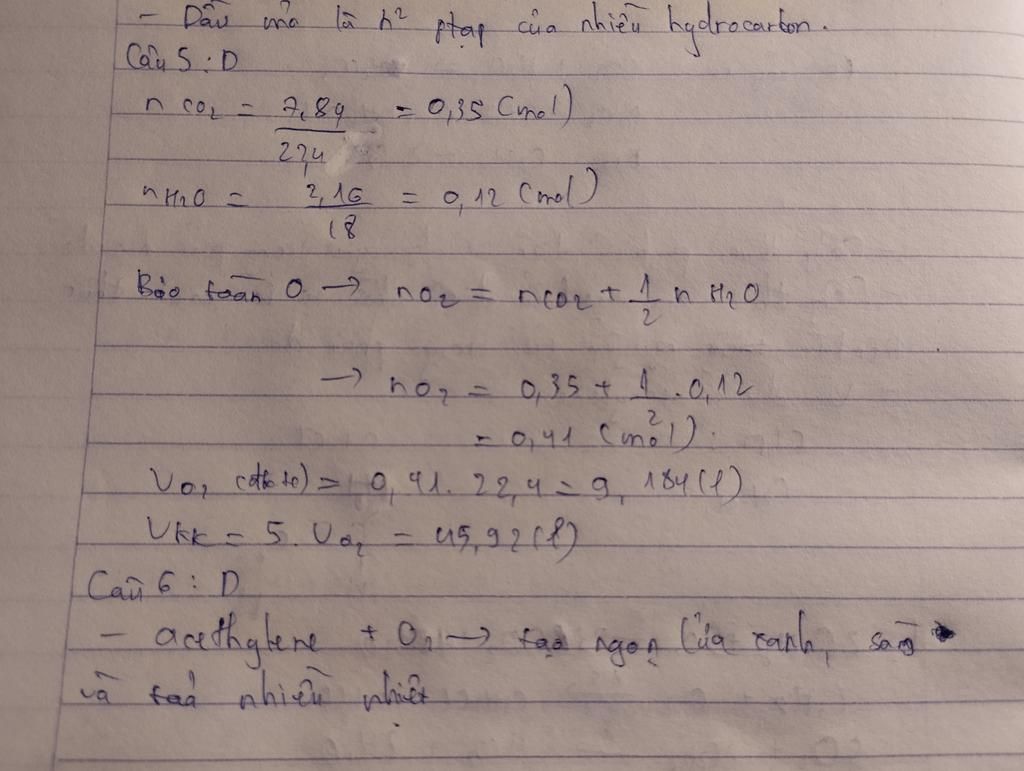 - Dầu mỏ là h² ptạp của nhiều hydrocarbon.
Câu 5 : D
n CO₂ = 7,84 / 22,4 = 0,35 (mol)
n H₂O = 2,16 / 18 = 0,12 (mol)
Bảo toàn O → nO₂ = nCO₂ + 1/2 n H₂O
→ nO₂ = 0,35 + 1/2 . 0,12
= 0,41 (mol).
VO₂ (đktc) = 0,41. 22,4 = 9,184(l)
VKK = 5. VO₂ = 45,92 (l)
Câu 6 : D
- acethylene + O₂ → tạo ngọn lửa xanh, sáng
và toả nhiều nhiệt